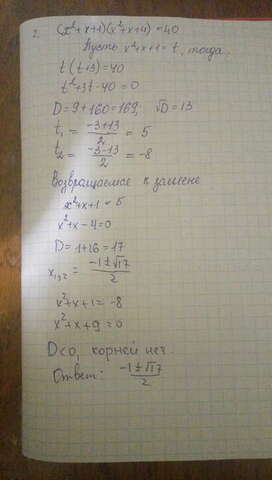 2. (x²+x+1)(x²+x+4)=40
Пусть x²+x+1=t, тогда,
t(t+3)=40
t²+3t-40=0
D=9+160=169; √D=13
t₁ = (-3+13)/2 = 5
t₂ = (-3-13)/2 = -8
Возвращаемся к замене
x²+x+1=5
x²+x-4=0
D=1+16=17
x₁,₂ = (-1±√17)/2
x²+x+1=-8
x²+x+9=0
D<0, корней нет.
Ответ: (-1±√17)/2